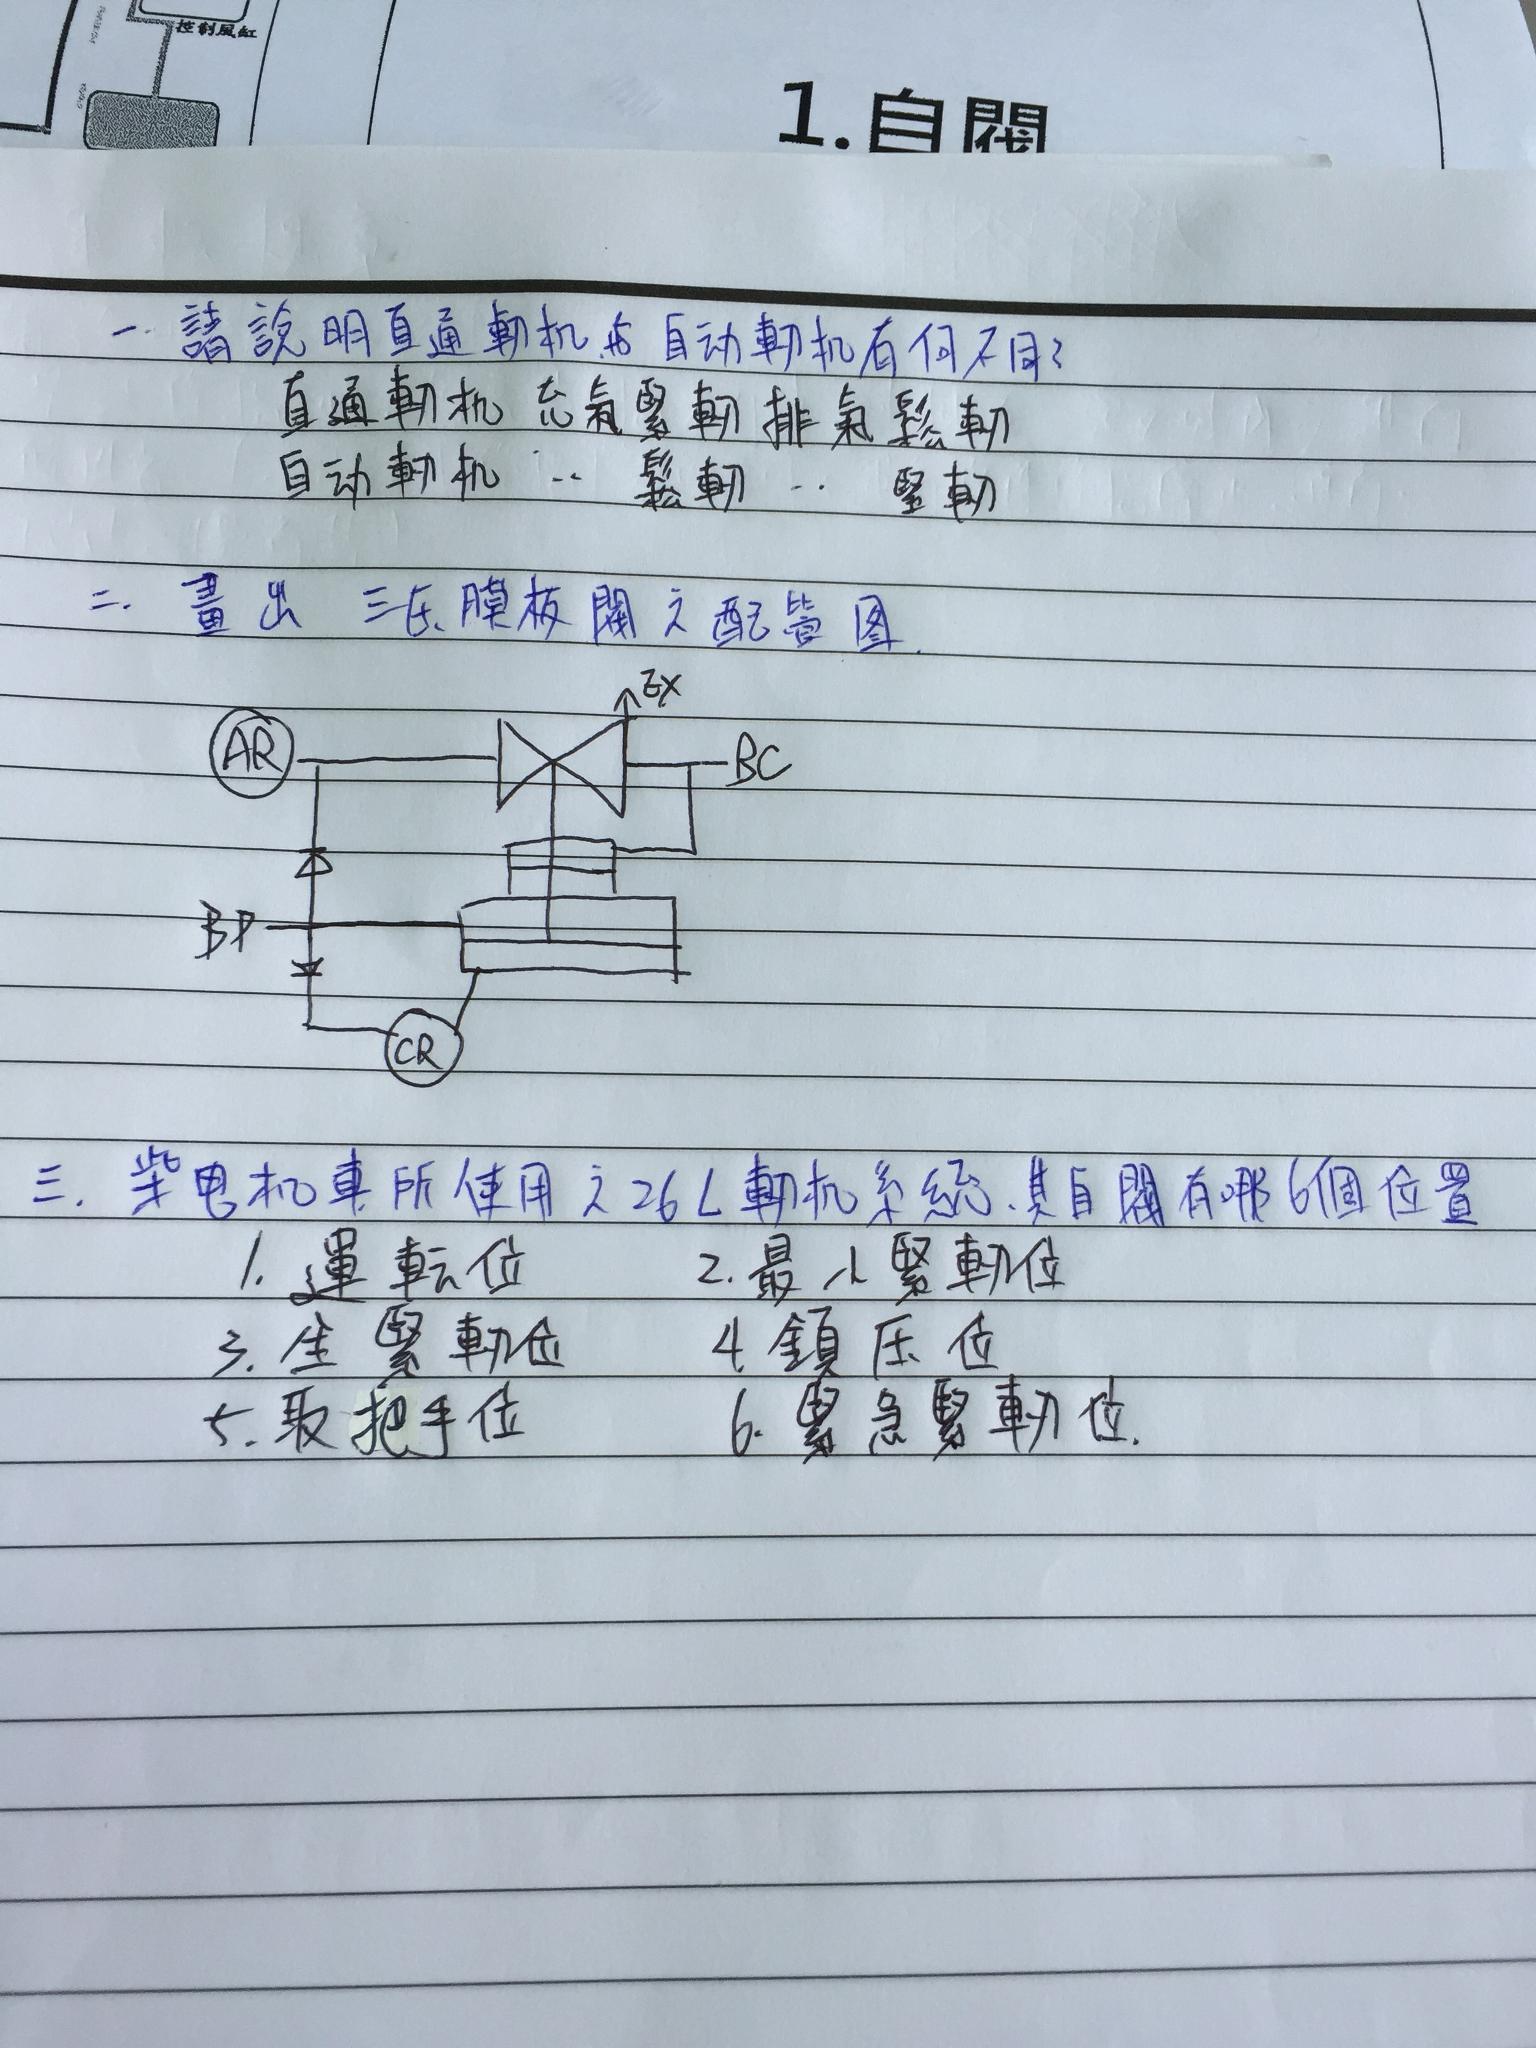 控制風缸
1.自閥
一. 請說明直通軔机与自动軔机有何不同?
直通軔机充氣緊軔排氣鬆軔
自动軔机 〃 鬆軔 〃 緊軔
二. 畫出 三压膜板閥之配管图.
EX
AR
BC
BP
CR
三. 柴电机車所使用之26L軔机系統.其自閥有哪6個位置
1. 運転位 2. 最小緊軔位
3. 全緊軔位 4. 鎖压位
5. 取把手位 6. 緊急緊軔位.